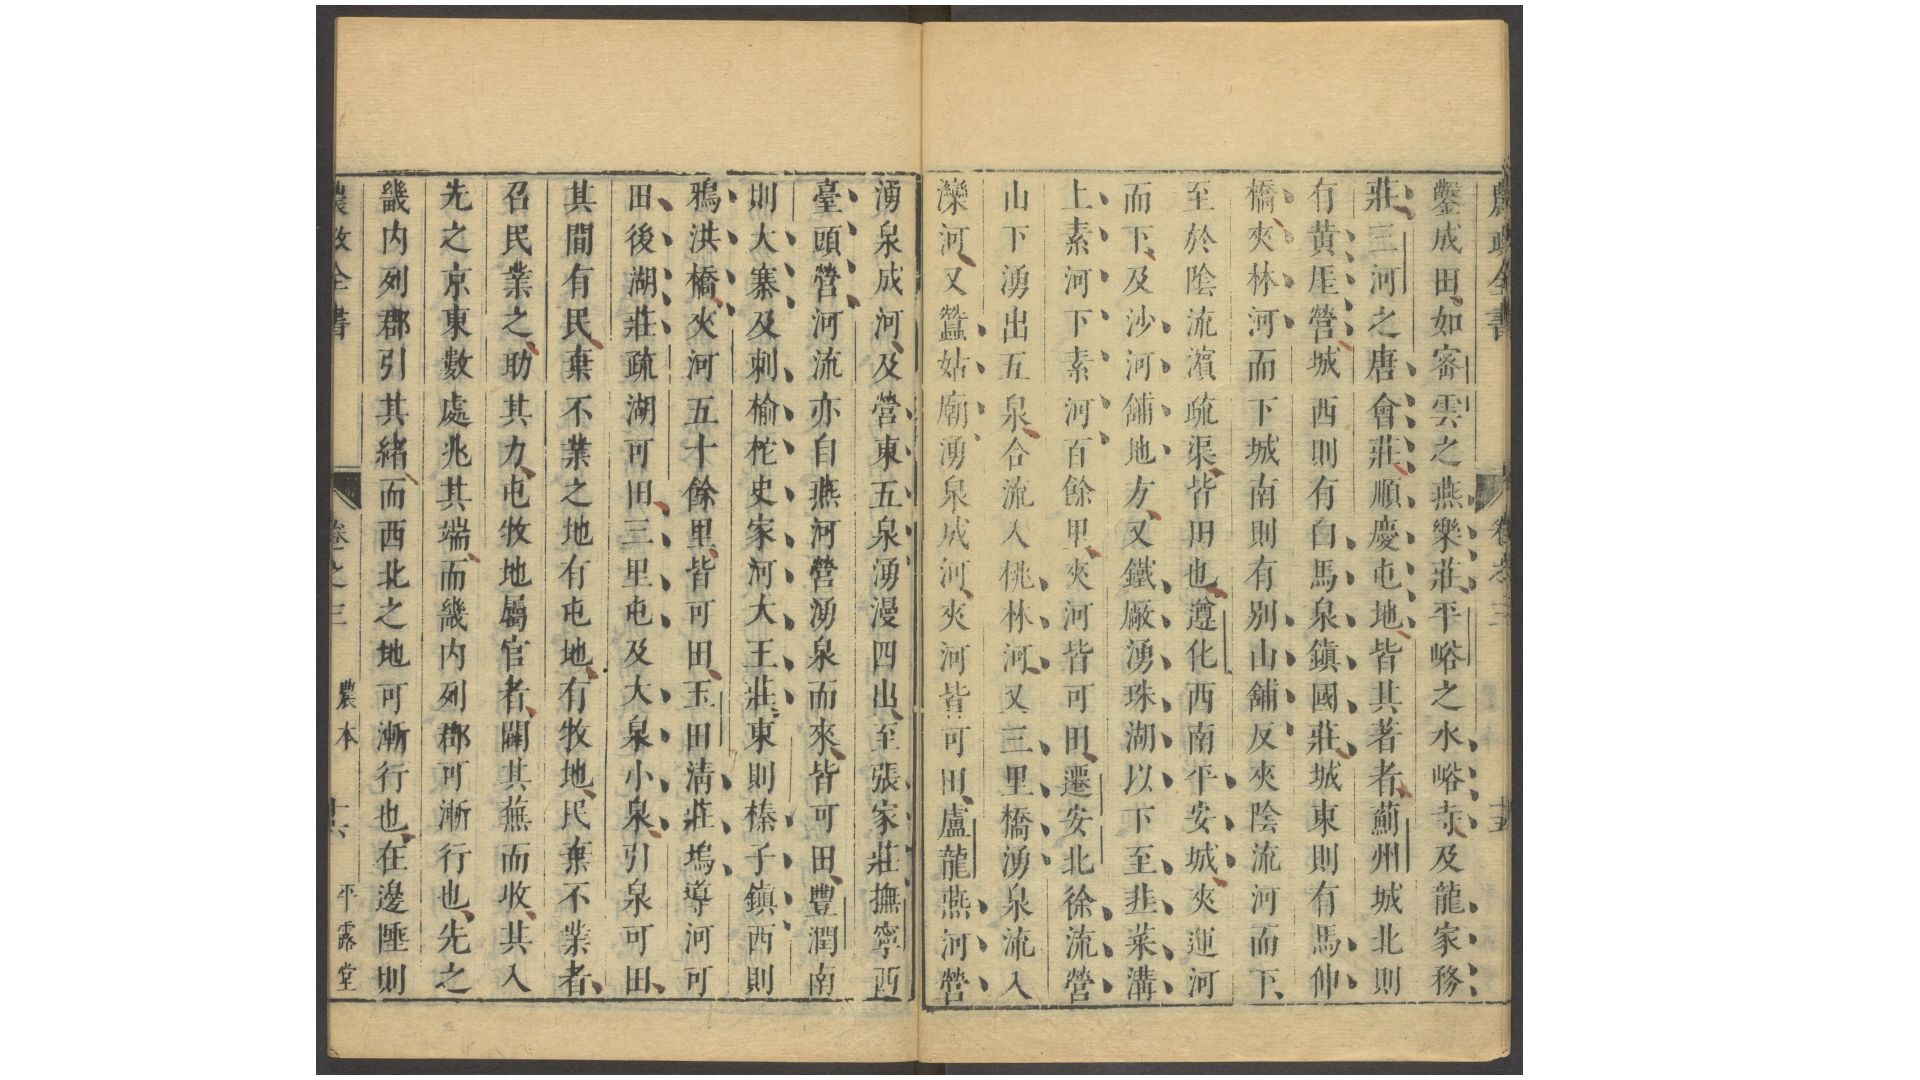 農政全書 卷之三 十五
鑿成田如密雲之燕樂莊平峪之水峪寺及龍家務
莊三河之唐會莊順慶屯地皆其著者薊州城北則
有黄厓營城西則有白馬泉鎭國莊城東則有馬伸
橋夾林河而下城南則有别山舖反夾陰流河而下
至於陰流濵疏渠皆田也遵化西南平安城夾運河
而下及沙河舖地方又鐵厰湧珠湖以下至韭菜溝
上素河下素河百餘里夾河皆可田遷安北徐流營
山下湧出五泉合流入桃林河又三里橋湧泉流入
灤河又蠶姑廟湧泉成河夾河皆可田盧龍燕河營
湧泉成河及營東五泉湧漫四出至張家莊撫寧西
臺頭營河流亦自燕河營湧泉而來皆可田豐潤南
則大寨及刺榆柁史家河大王莊東則榛子鎭西則
鴉洪橋夾河五十餘里皆可田玉田淸莊塢導河可
田後湖莊疏湖可田三里屯及大泉小泉引泉可田
其間有民棄不業之地有屯地有牧地民棄不業者
召民業之助其力屯牧地屬官者闢其蕪而收其入
先之京東數處兆其端而畿内列郡可漸行也先之
畿内列郡引其緒而西北之地可漸行也在邊陲則
農政全書 卷之三 農本 十六 平露堂